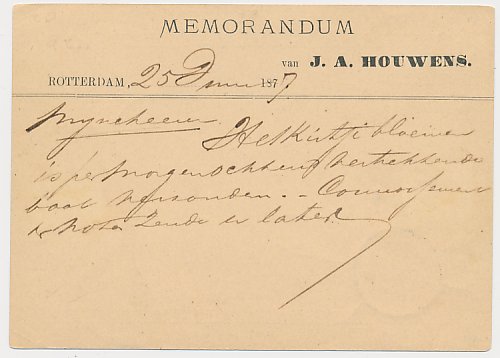 MEMORANDUM
van J. A. HOUWENS.
ROTTERDAM, 25 Juni 1877
Mijnheer
Het Kistje bloemen
is per morgenochtend vertrekkende
boot verzonden. — Connossement
& nota zende u later